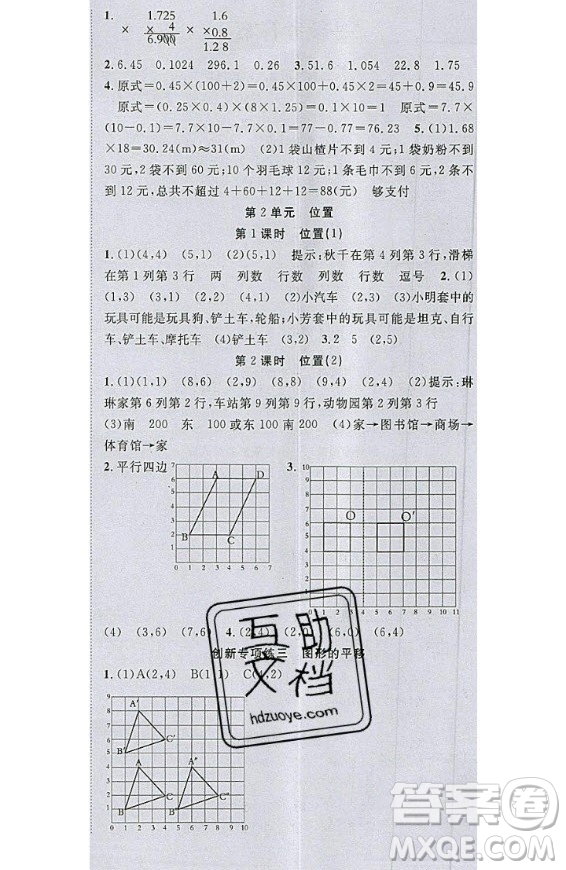 1. 1.725 1.6
× × 4 × ×0.8
6.900 1.28
2.6.45 0.1024 296.1 0.26 3.51.6 1.054 22.8 1.75
4.原式=0.45×(100+2)=0.45×100+0.45×2=45+0.9=45.9
原式=(0.25×0.4)×(8×1.25)=0.1×10=1 原式=7.7×
(10-0.1)=7.7×10-7.7×0.1=77-0.77=76.23 5.(1)1.68
×18=30.24(m)≈31(m) (2)1袋山楂片不到4元;1袋奶粉不到
30元,2袋不到60元;10个羽毛球12元;1条毛巾不到6元,2条不
到12元,总共不超过4+60+12+12=88(元) 够支付
第2单元 位置
第1课时 位置(1)
1.(1)(4,4) (5,1) (2)(5,1) 提示:秋千在第4列第3行,滑梯
在第1列第3行 两 列数 行数 列数 行数 逗号 2.(1)
(1,3) (3,1) (6,2) (2)小汽车 (3)(2,1) 提示:小明套中的
玩具可能是玩具狗、铲土车,轮船;小芳套中的玩具可能是坦克、自行
车、铲土车、摩托车 (4)铲土车 (3,2) 3.2 5 (2,5)
第2课时 位置(2)
1.(1)(1,1) (8,6) (2,9) (8,8) (9,4) (2)提示:琳
琳家第6列第2行,车站第9列第9行,动物园第2列第1行
(3)南 200 东 100或东100南200 (4)家→图书馆→商场→
体育馆→家
2.平行四边 3.
7 6 5 4 3 2 1
A D B C
0 1 2 3 4 5 6 7
10 9 8 7 6 5 4 3 2 1
O O′
0 1 2 3 4 5 6 7 8 9 10 11
(4) (3,6) (7,6) 4.(2,4) (2,0) (4,0) (6,0) (6,4)
创新专项练三 图形的平移
1.(1)A(2,4) B(1,1) C(4,2)
9 8 7 6 5 4 3 2 1
A′ B′ C′ A B C A″ B″ C″
0 1 2 3 4 5 6 7 8 9 10
互助
文档
hdzuoye.com
答案圈
MXQE.COM